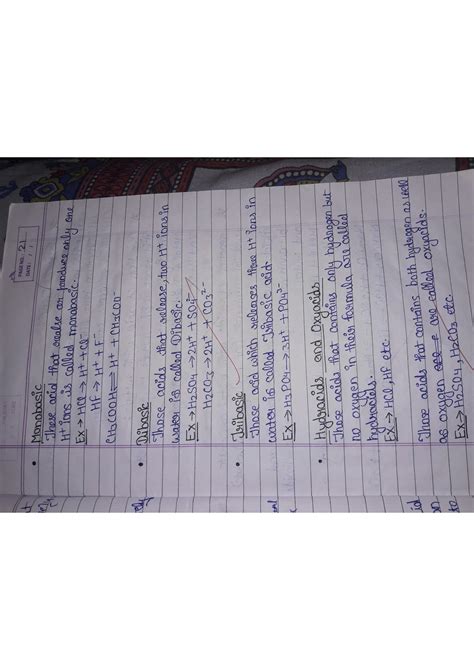 PAGE NO. 21
DATE
• Monobasic
These acid that realse or produce only one
H⁺ ions is called monobasic.
Ex → HCl → H⁺ + Cl⁻
HF → H⁺ + F⁻
CH₃COOH ⇌ H⁺ + CH₃COO⁻
• Dibasic
Those acids that release, two H⁺ ions in
water is called Dibasic.
Ex → H₂SO₄ → 2H⁺ + SO₄²⁻
H₂CO₃ → 2H⁺ + CO₃²⁻
• Tribasic
Those acid which releases three H⁺ ions in
water is called Tribasic acid.
Ex → H₃PO₄ → 3H⁺ + PO₄³⁻
• Hydracids and Oxyacids
These acids that contains only hydrogen but
no oxygen in their formula are called
hydracids.
Ex → HCl, HF etc.
Those acids that contains both hydrogen as well
as oxygen are called oxyacids.
Ex → H₂SO₄, H₂CO₃ etc.